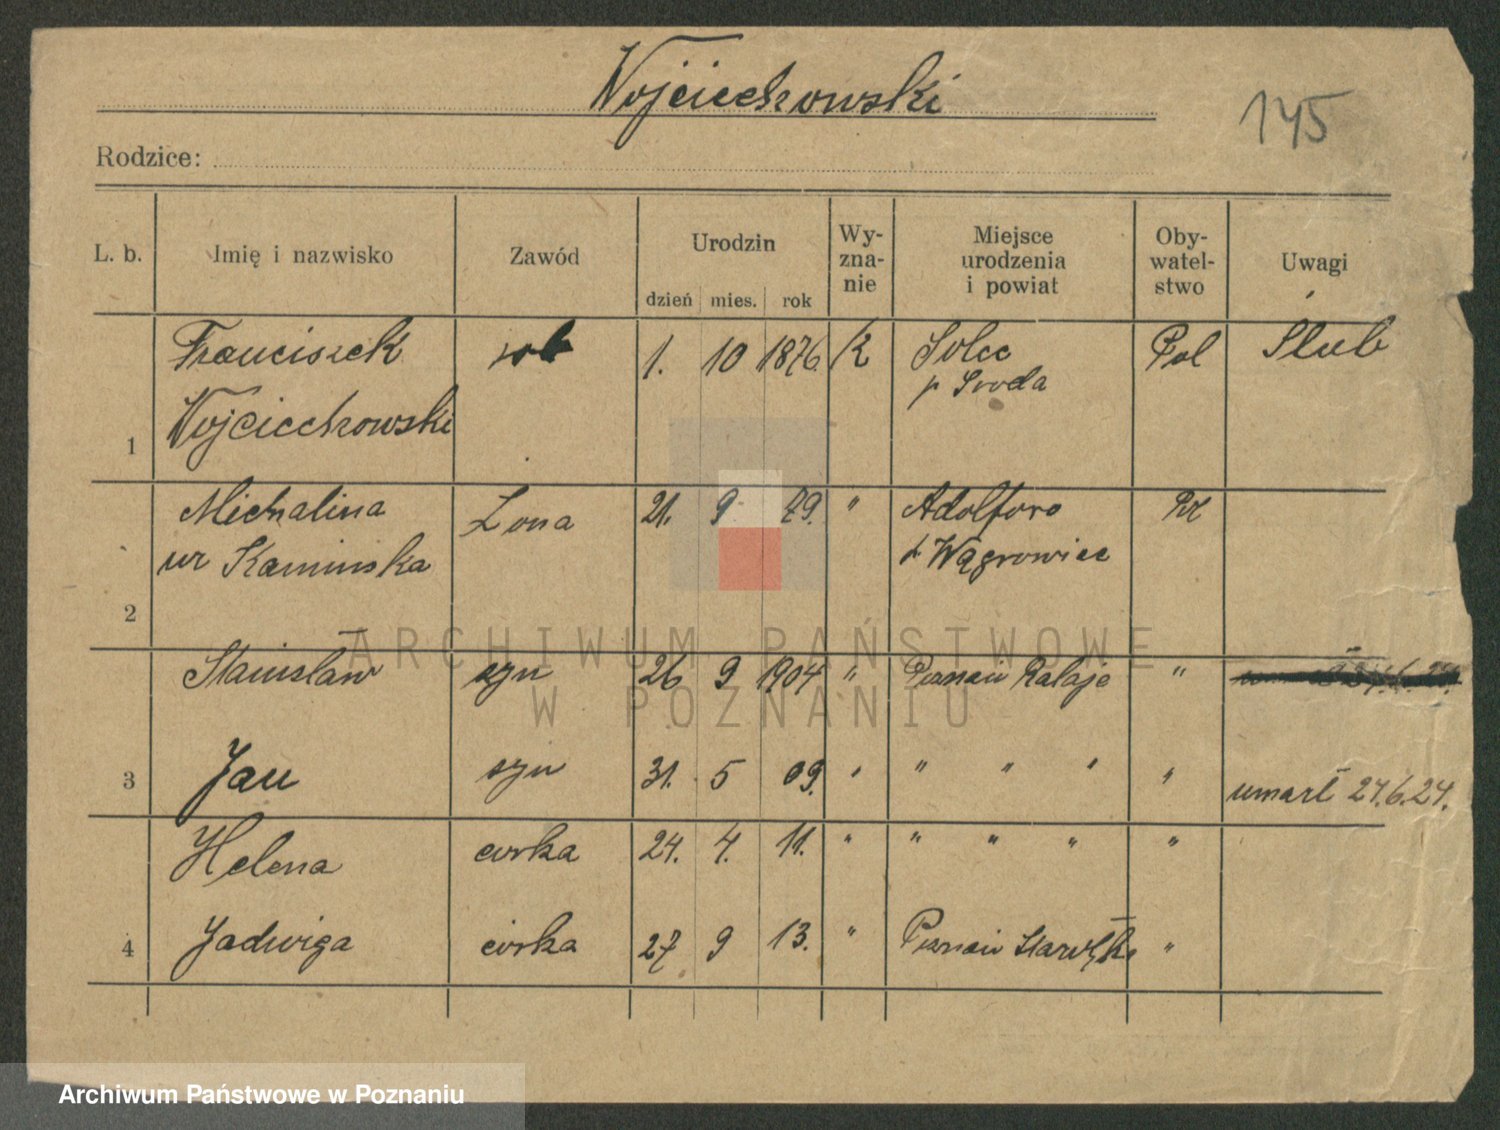 Wojciechowski
145
Rodzice:
L. b. Imię i nazwisko Zawód Urodzin dzień mies. rok Wy-zna-nie Miejsce urodzenia i powiat Oby-watel-stwo Uwagi
Franciszek rob 1. 10 1876 K Solec Pol Slub
p Sroda
1 Wojciechowski
Michalina Żona 21. 9. 79. " Adolfowo
ur Kaminska p. Wągrowiec
2
Stanisław syn 26 9 1904 " Poznań Rataje "
3 Jan syn 31. 5 09. " " " " " umarł 27.6.27.
Helena corka 24. 4. 11. " " " " "
4 Jadwiga córka 27 9 13. " Poznań "
ARCHIWUM PAŃSTWOWE
W POZNANIU
Archiwum Państwowe w Poznaniu